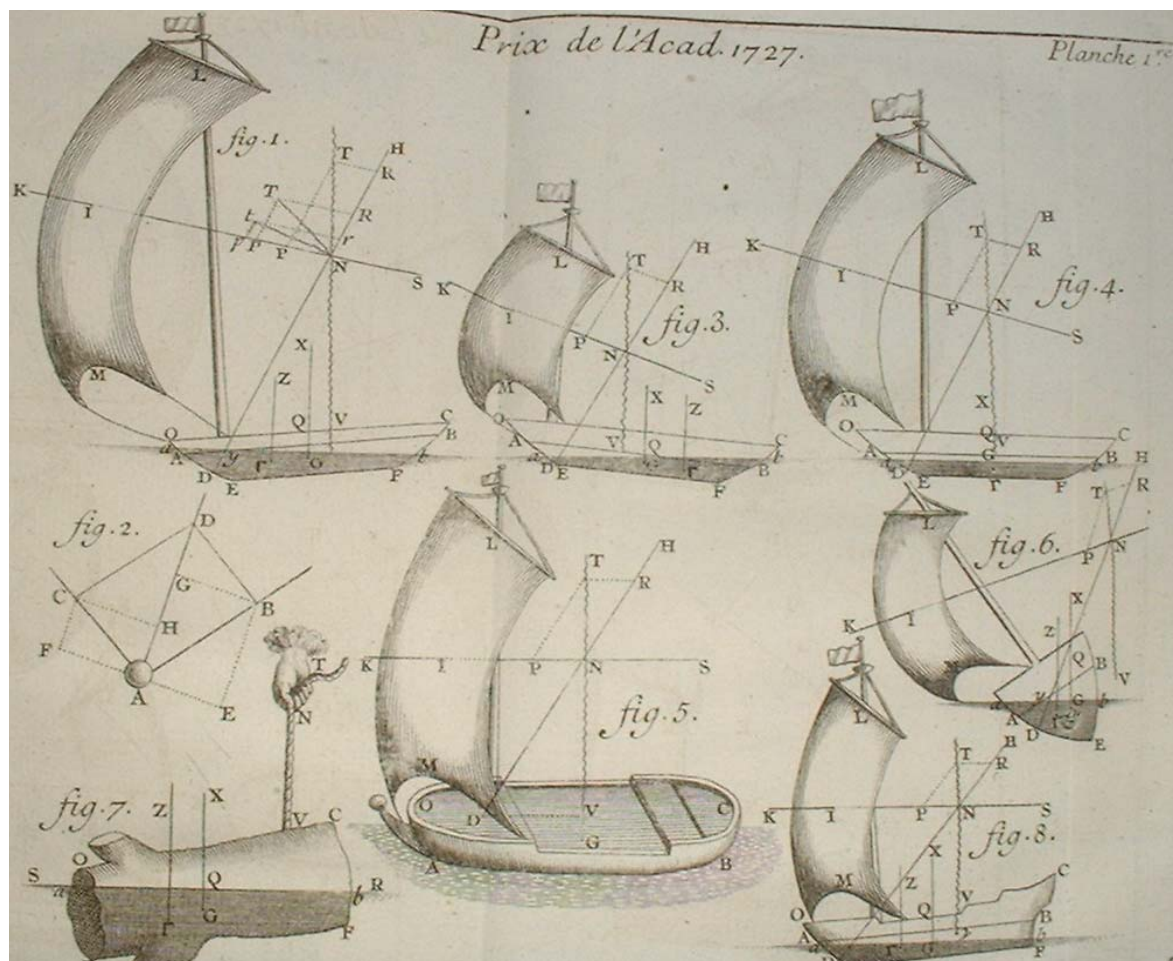 Prix de l'Acad. 1727.
Planche 1.re
fig. 1.
L
T
H
R
K
I
T
R
t
p
P
P
r
N
S
M
X
Z
Q
V
C
O
B
a
A
y
Γ
G
b
D
E
F
fig. 3.
L
T
H
R
K
I
P
N
S
M
X
Z
O
A
V
Q
C
a
D
E
Γ
B
b
F
fig. 4.
L
H
T
R
K
I
P
N
S
M
X
O
Q
V
C
A
G
B
b
D
E
Γ
F
fig. 2.
D
C
G
B
H
F
A
E
fig. 5.
L
T
H
R
K
I
P
N
S
M
O
D
V
C
G
A
B
fig. 6.
L
H
T
R
P
N
K
I
X
Z
Q
B
V
a
A
y
G
b
D
E
fig. 7.
T
N
Z
X
V
C
O
S
a
Q
b
R
Γ
G
F
fig. 8.
L
T
H
R
K
I
P
N
S
X
M
Z
C
O
Q
V
B
A
a
G
b
F